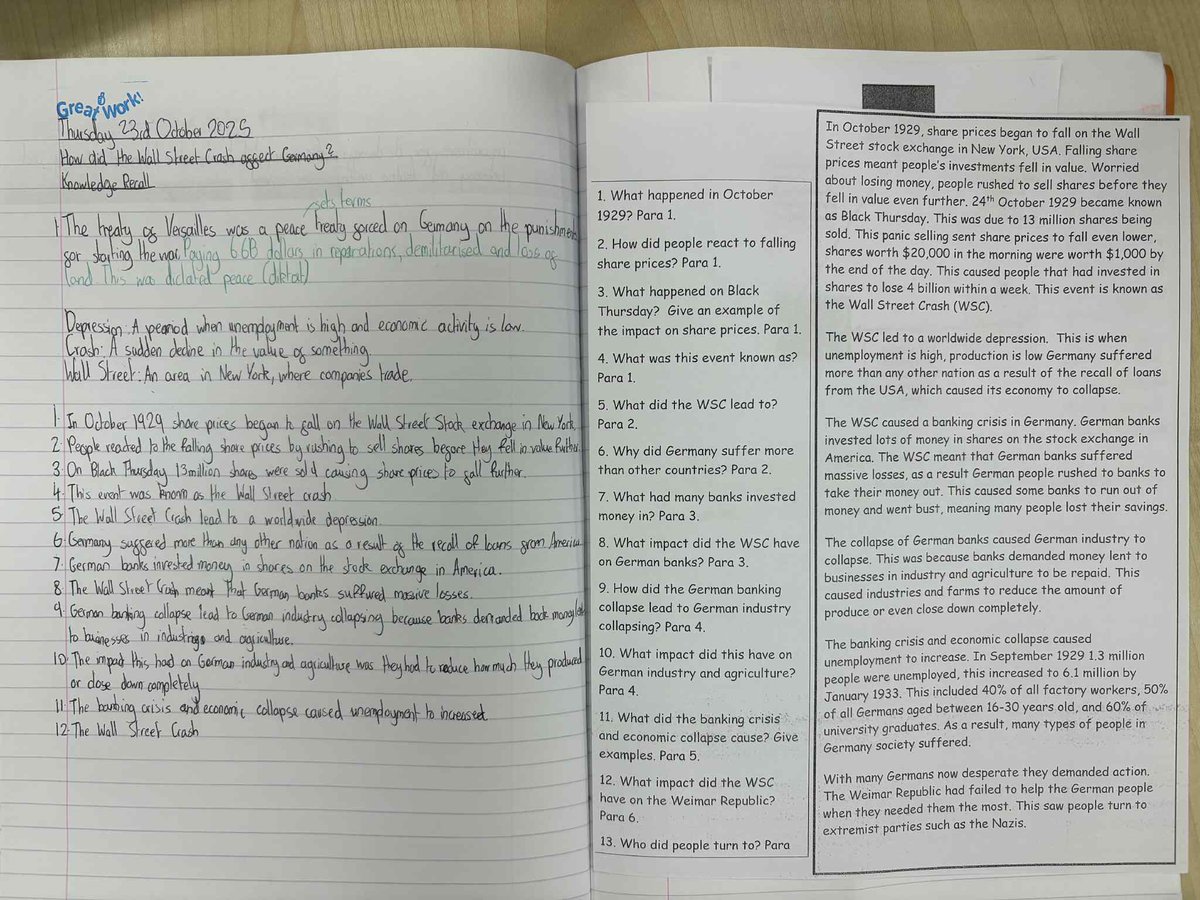 Great Work!
Thursday 23rd October 2025
How did the Wall Street Crash affect Germany?
Knowledge Recall
sets terms
1 The treaty of Versailles was a peace treaty forced on Germany on the punishments
for starting the war. Paying 6.6B dollars in reparations, demilitarised and loss of
land. This was dictated peace (diktat)
Depression: A peroiod when unemployment is high and economic activity is low.
Crash: A sudden decline in the value of something.
Wall Street: An area in New York, where companies trade.
1. In October 1929 share prices began to fall on the Wall Street Stock exchange in New York.
2. People reacted to the falling share prices by rushing to sell shares before they fell in value further.
3. On Black Thursday 13 million shares were sold causing share prices to fall further.
4. This event was known as the Wall Street crash
5. The Wall Street Crash lead to a worldwide depression.
6. Germany suffered more than any other nation as a result of the recall of loans from America.
7. German banks invested money in shares on the stock exchange in America.
8. The Wall Street Crash meant that German banks suffured massive losses.
9. German banking collapse lead to German industry collapsing because banks demanded back money
to businesses in industry and agriculture.
10. The impact this had on German industry and agriculture was they had to reduce how much they produced
or close down completely
11. The banking crisis and economic collapse caused unemployment to increased.
12. The Wall Street Crash
1. What happened in October
1929? Para 1.
2. How did people react to falling
share prices? Para 1.
3. What happened on Black
Thursday? Give an example of
the impact on share prices. Para 1.
4. What was this event known as?
Para 1.
5. What did the WSC lead to?
Para 2.
6. Why did Germany suffer more
than other countries? Para 2.
7. What had many banks invested
money in? Para 3.
8. What impact did the WSC have
on German banks? Para 3.
9. How did the German banking
collapse lead to German industry
collapsing? Para 4.
10. What impact did this have on
German industry and agriculture?
Para 4.
11. What did the banking crisis
and economic collapse cause? Give
examples. Para 5.
12. What impact did the WSC
have on the Weimar Republic?
Para 6.
13. Who did people turn to? Para
In October 1929, share prices began to fall on the Wall
Street stock exchange in New York, USA. Falling share
prices meant people's investments fell in value. Worried
about losing money, people rushed to sell shares before they
fell in value even further. 24th October 1929 became known
as Black Thursday. This was due to 13 million shares being
sold. This panic selling sent share prices to fall even lower,
shares worth $20,000 in the morning were worth $1,000 by
the end of the day. This caused people that had invested in
shares to lose 4 billion within a week. This event is known as
the Wall Street Crash (WSC).
The WSC led to a worldwide depression. This is when
unemployment is high, production is low Germany suffered
more than any other nation as a result of the recall of loans
from the USA, which caused its economy to collapse.
The WSC caused a banking crisis in Germany. German banks
invested lots of money in shares on the stock exchange in
America. The WSC meant that German banks suffered
massive losses, as a result German people rushed to banks to
take their money out. This caused some banks to run out of
money and went bust, meaning many people lost their savings.
The collapse of German banks caused German industry to
collapse. This was because banks demanded money lent to
businesses in industry and agriculture to be repaid. This
caused industries and farms to reduce the amount of
produce or even close down completely.
The banking crisis and economic collapse caused
unemployment to increase. In September 1929 1.3 million
people were unemployed, this increased to 6.1 million by
January 1933. This included 40% of all factory workers, 50%
of all Germans aged between 16-30 years old, and 60% of
university graduates. As a result, many types of people in
Germany society suffered.
With many Germans now desperate they demanded action.
The Weimar Republic had failed to help the German people
when they needed them the most. This saw people turn to
extremist parties such as the Nazis.